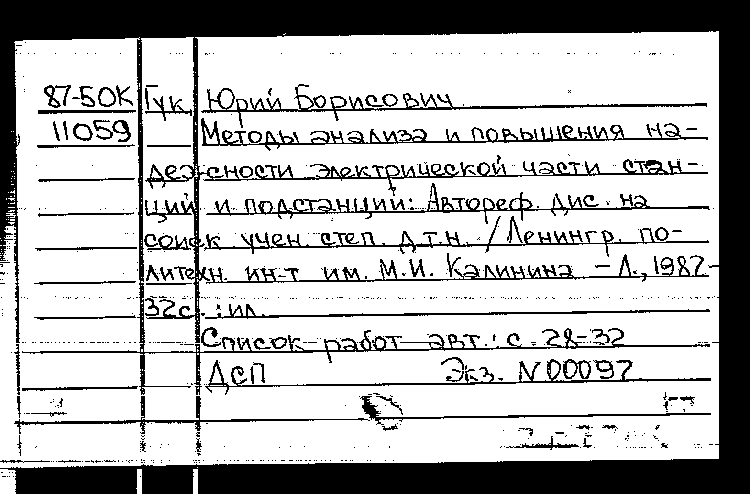 87-50К Гук, Юрий Борисович
11059 Методы анализа и повышения на-
дежности электрической части стан-
ций и подстанций: Автореф. дис. на
соиск учен. степ. д.т.н. / Ленингр. по-
литехн. ин-т им. М.И. Калинина - Л., 1987-
32с. : ил.
Список работ авт.: с. 28-32
ДСП Экз. N 00097